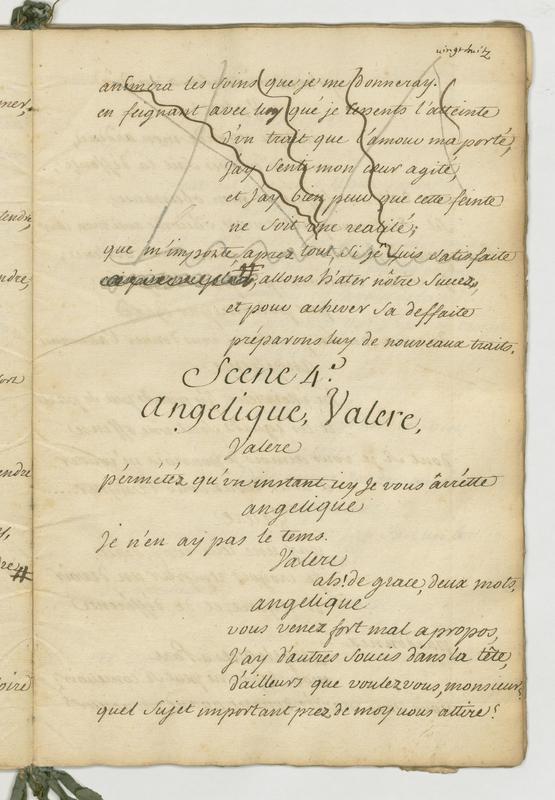 vingt huitz
animera les soins que je me donneray.
en feignant avec luy que je ressents l'atteinte
d'un trait que l'amour m'a porté,
J'ay senti mon cœur agité,
et J'ay bien peur que cette feinte
ne soit une realité;
que m'importe aprez tout, si je suis satisfaite
allons hater nôtre succez,
et pour achever sa deffaite
préparons luy de nouveaux traits.
Scene 4.e
Angelique, Valere,
Valere
pérmétéz qu'un instant icy Je vous ârrétte
angelique
Je n'en ay pas le tems.
Valere
ah! de grace, deux mots,
angelique
vous venez fort mal apropos,
J'ay d'autres soucis dans la tête,
d'ailleurs que voulez vous, monsieur,
quel sujet important prez de moy vous attire?
endre,
endre;
endre
oire